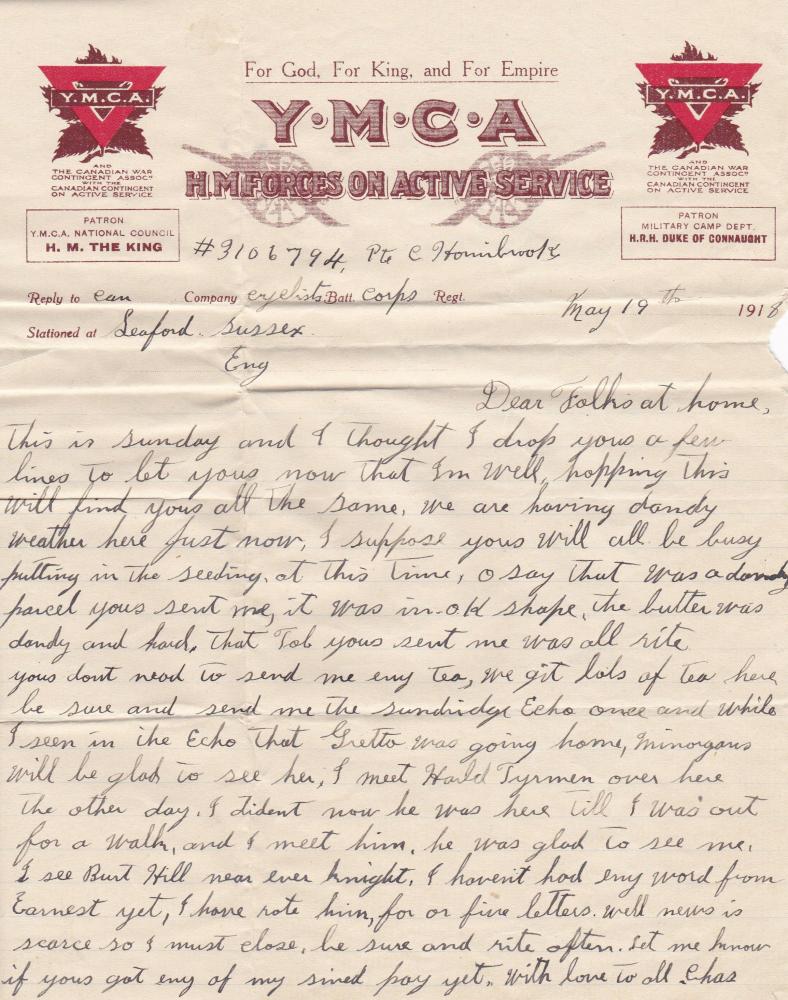 For God, For King, and For Empire
Y·M·C·A
H.M FORCES ON ACTIVE SERVICE
Y.M.C.A.
AND
THE CANADIAN WAR
CONTINGENT ASSOCN
WITH THE
CANADIAN CONTINGENT
ON ACTIVE SERVICE
PATRON
Y.M.C.A. NATIONAL COUNCIL
H. M. THE KING
Y.M.C.A.
AND
THE CANADIAN WAR
CONTINGENT ASSOCN
WITH THE
CANADIAN CONTINGENT
ON ACTIVE SERVICE
PATRON
MILITARY CAMP DEPT.
H.R.H. DUKE OF CONNAUGHT
#3106794, Pte C Hornibrook
Reply to can Company cyclists Batt. Corps Regt. May 19th 1918
Stationed at Seaford. Sussex.
Eng
Dear Folks at home,
this is sunday and I thought I drop yous a few
lines to let yous now that Im well, hopping this
will find yous all the same, we are having dandy
weather here just now, I suppose yous will all be busy
putting in the seeding, at this time, o say that was a dandy
parcel yous sent me, it was in o.k shape, the butter was
dandy and hard, that Tob yous sent me was all rite
yous dont need to send me eny tea, we git lots of tea here
be sure and send me the sundridge Echo once and while
I seen in the Echo that Gretta was going home, Minorgans
will be glad to see her, I meet Harld Tyrmen over here
the other day. I dident now he was here till I was out
for a walk, and I meet him. he was glad to see me.
I see Burt Hill near ever knight. I havent had eny word from
Earnest yet, I have rote him, for or five letters. well news is
scarce so I must close, be sure and rite often. Let me know
if yous got eny of my sined pay yet. With love to all Chas